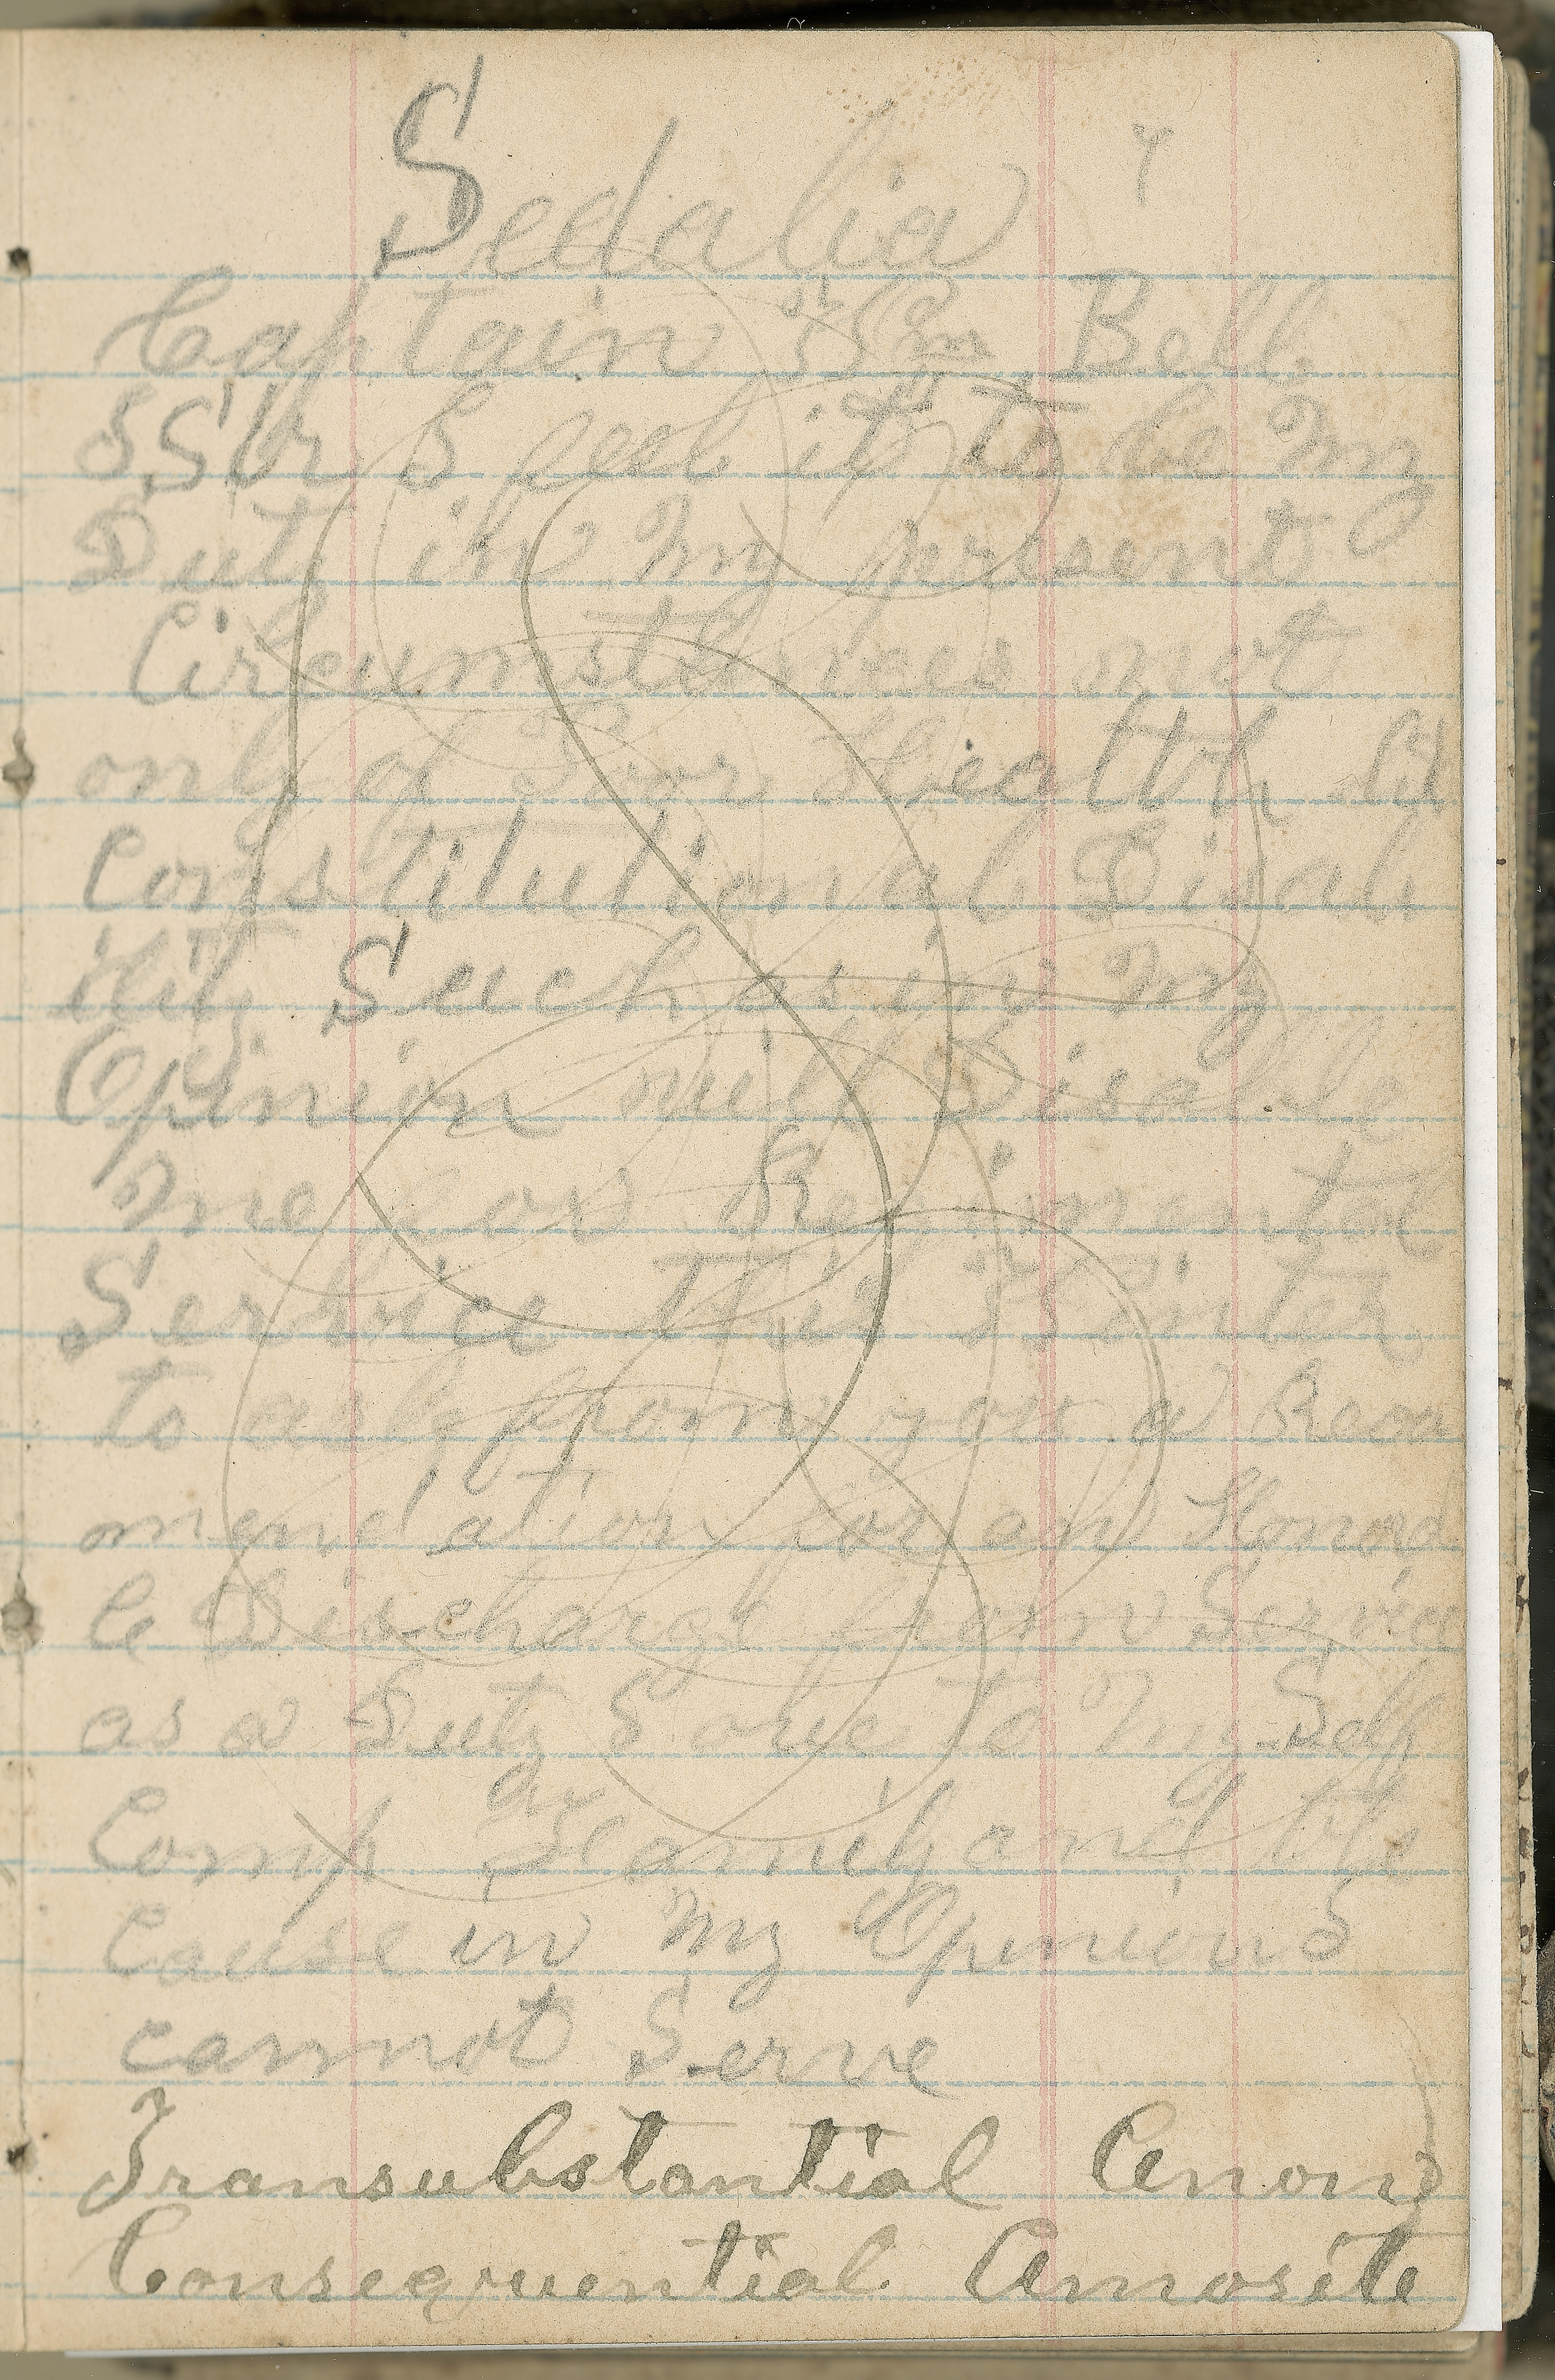 Sedalia
Captain Wm Bell
SSir I feel it to be my
Duty in my present
Circumstances not
only of Poor Health bt
Constitutional Disab
ility Such as in my
Opinion will Disable
me for Regimental
Service this Winter
to ask from you a Recom
mendation for an Honorab
le Discharge from Service
as a Duty I owe to my Self
Comp Family and the
Cause in my Opinion I
cannot Serve
Transubstantial Anon
Consequential Amosite